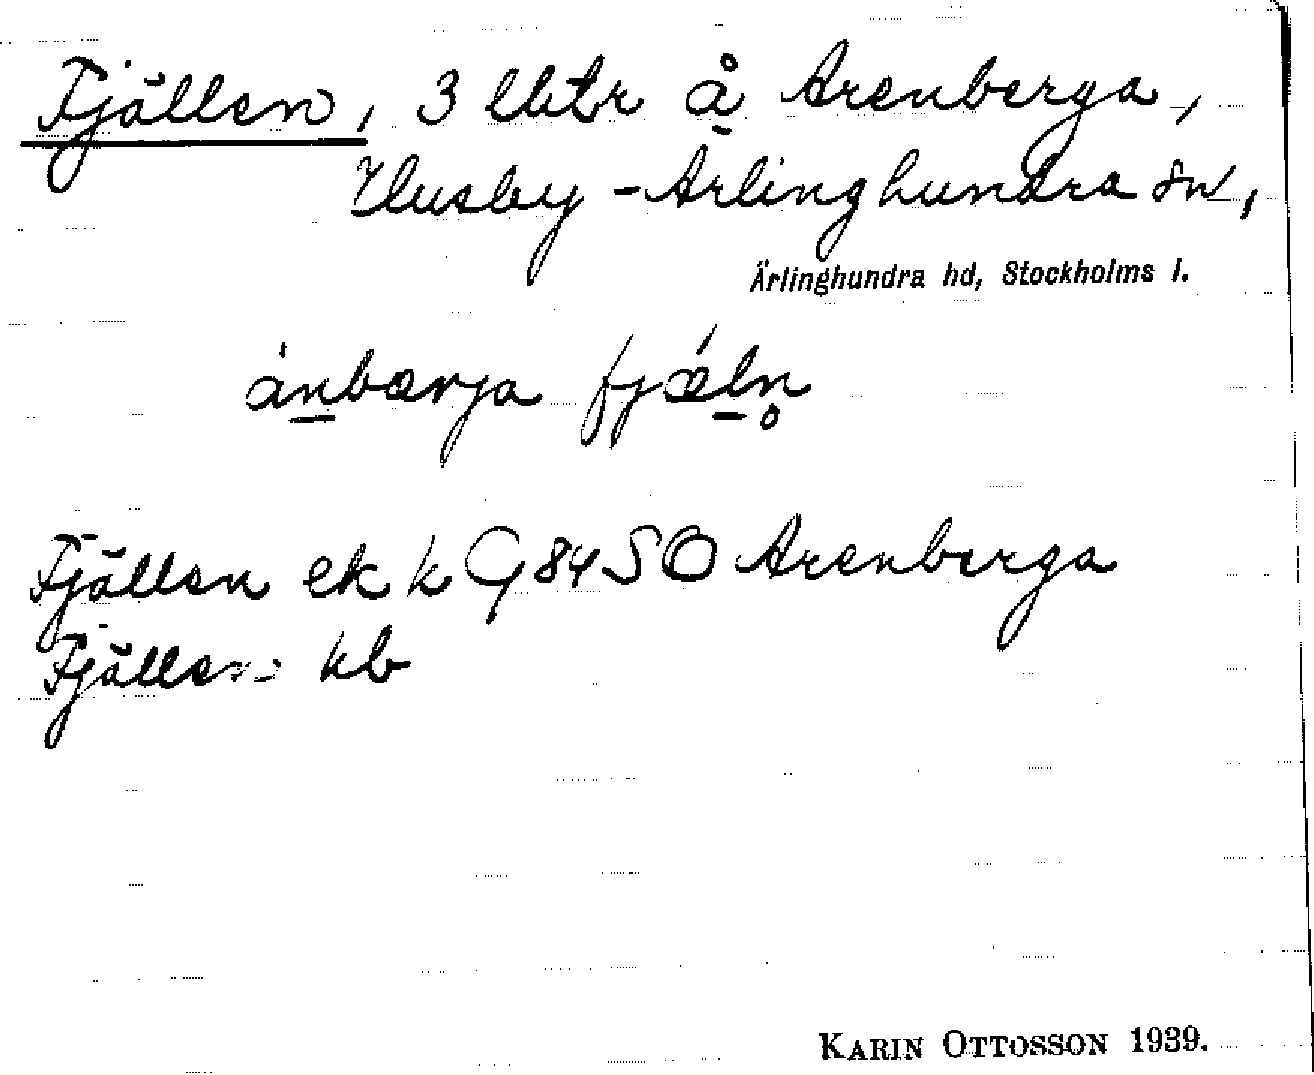 Fjällen, 3 lhtr å Arenberga,
Husby-Ärlinghundra sn,
Ärlinghundra hd, Stockholms l.
ánbærja fjæ´ln̥
Fjällen ek k G84SO Arenberga
Fjällen kb
KARIN OTTOSSON 1939.